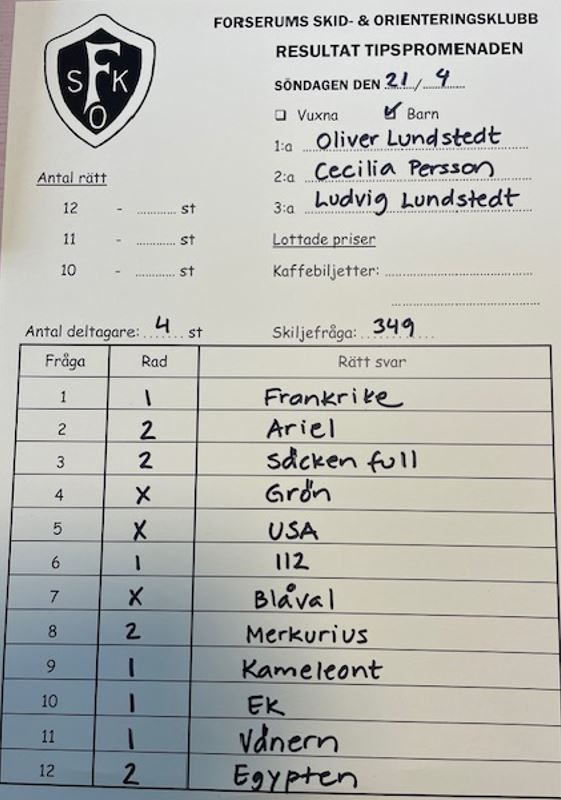 FORSERUMS SKID- & ORIENTERINGSKLUBB
SFKO
RESULTAT TIPSPROMENADEN
SÖNDAGEN DEN 21/4
Vuxna ☑ Barn
1:a Oliver Lundstedt
2:a Cecilia Persson
3:a Ludvig Lundstedt
Antal rätt
12 - ............ st
11 - ............ st
10 - ............ st
Lottade priser
Kaffebiljetter: ............
Antal deltagare: 4 st
Skiljefråga: 349
Fråga Rad Rätt svar
1 1 Frankrike
2 2 Ariel
3 2 Säcken full
4 X Grön
5 X USA
6 1 112
7 X Blåval
8 2 Merkurius
9 1 Kameleont
10 1 EK
11 1 Vänern
12 2 Egypten